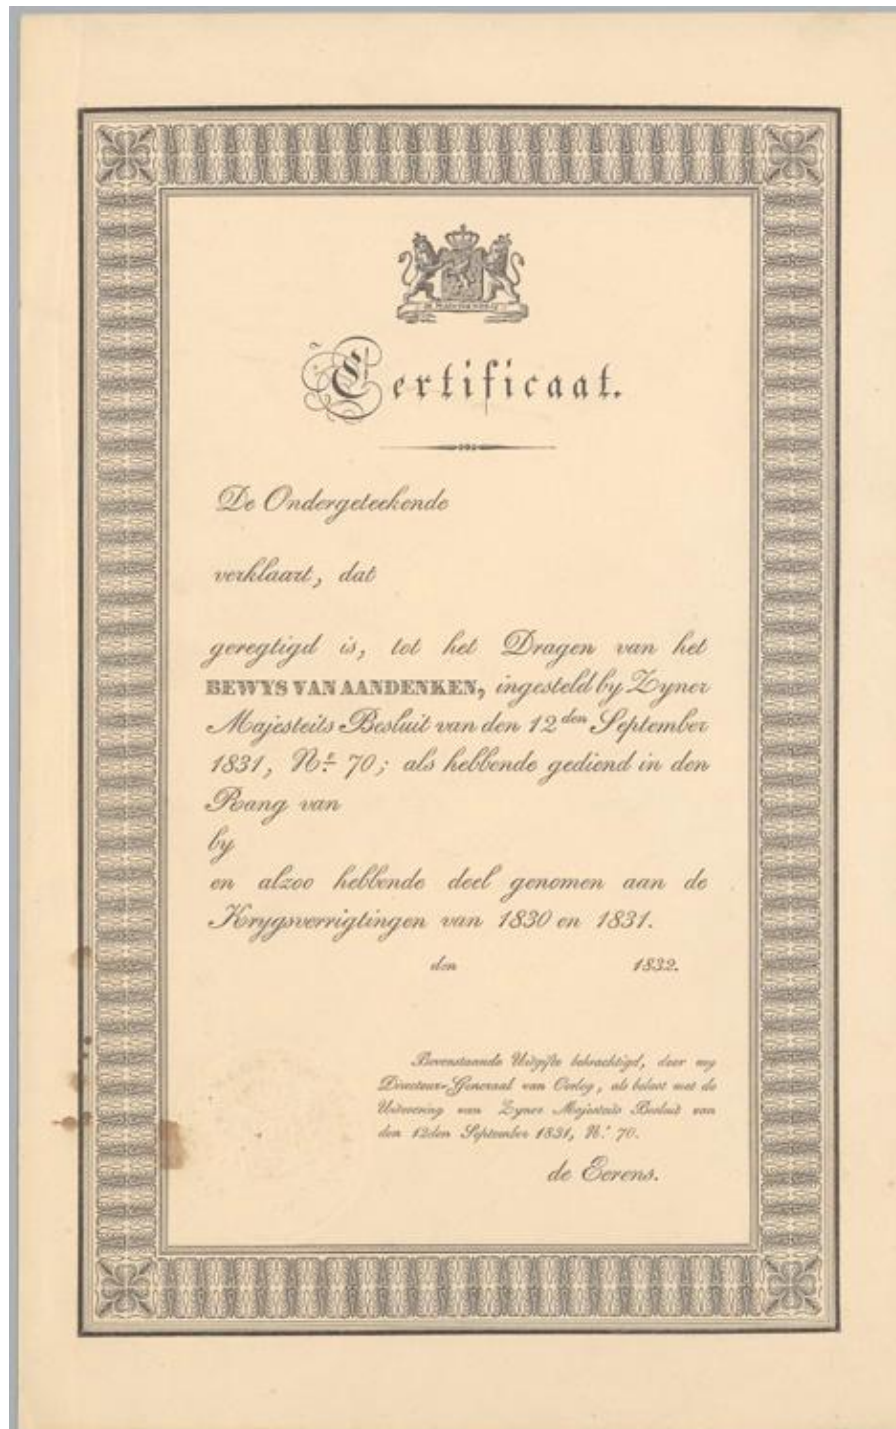 Certificaat.
De Ondergeteekende
verklaart, dat
geregtigd is, tot het Dragen van het
BEWYS VAN AANDENKEN, ingesteld by Zyner
Majesteits Besluit van den 12den September
1831, No. 70; als hebbende gediend in den
Rang van
by
en alzoo hebbende deel genomen aan de
Krygsverrigtingen van 1830 en 1831.
den 1832.
Bovenstaande Uitgifte bekrachtigd, door my
Directeur-Generaal van Oorlog, als belast met de
Uitvoering van Zyner Majesteits Besluit van
den 12den September 1831, N.º 70.
de Eerens.